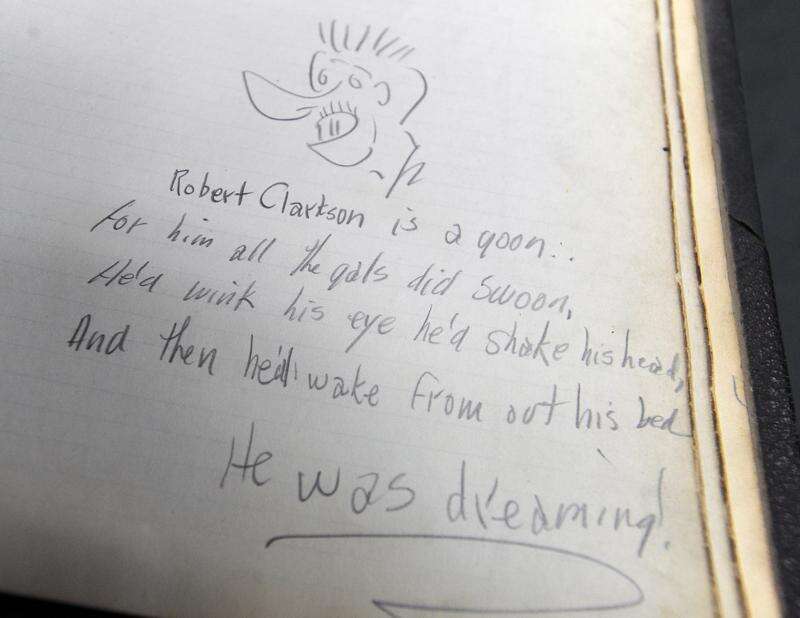 Robert Clartson is a goon..
For him all the gals did swoon,
He'd wink his eye he'd shake his head,
And then he'd wake from out his bed
He was dreaming!